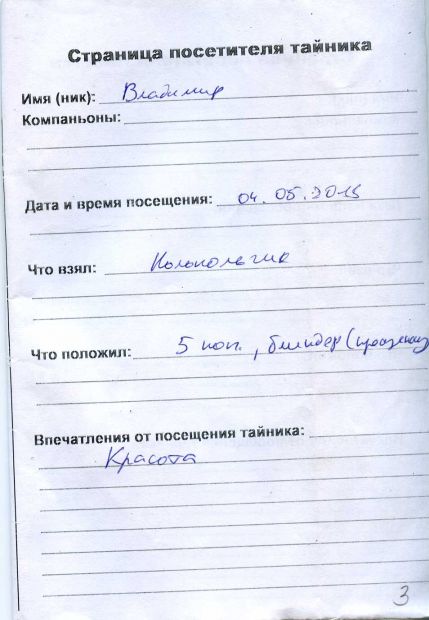 Страница посетителя тайника
Имя (ник): Владимир
Компаньоны:
Дата и время посещения: 04.05.2015
Что взял: Колокольчик
Что положил: 5 коп.,
Впечатления от посещения тайника:
Красота
3